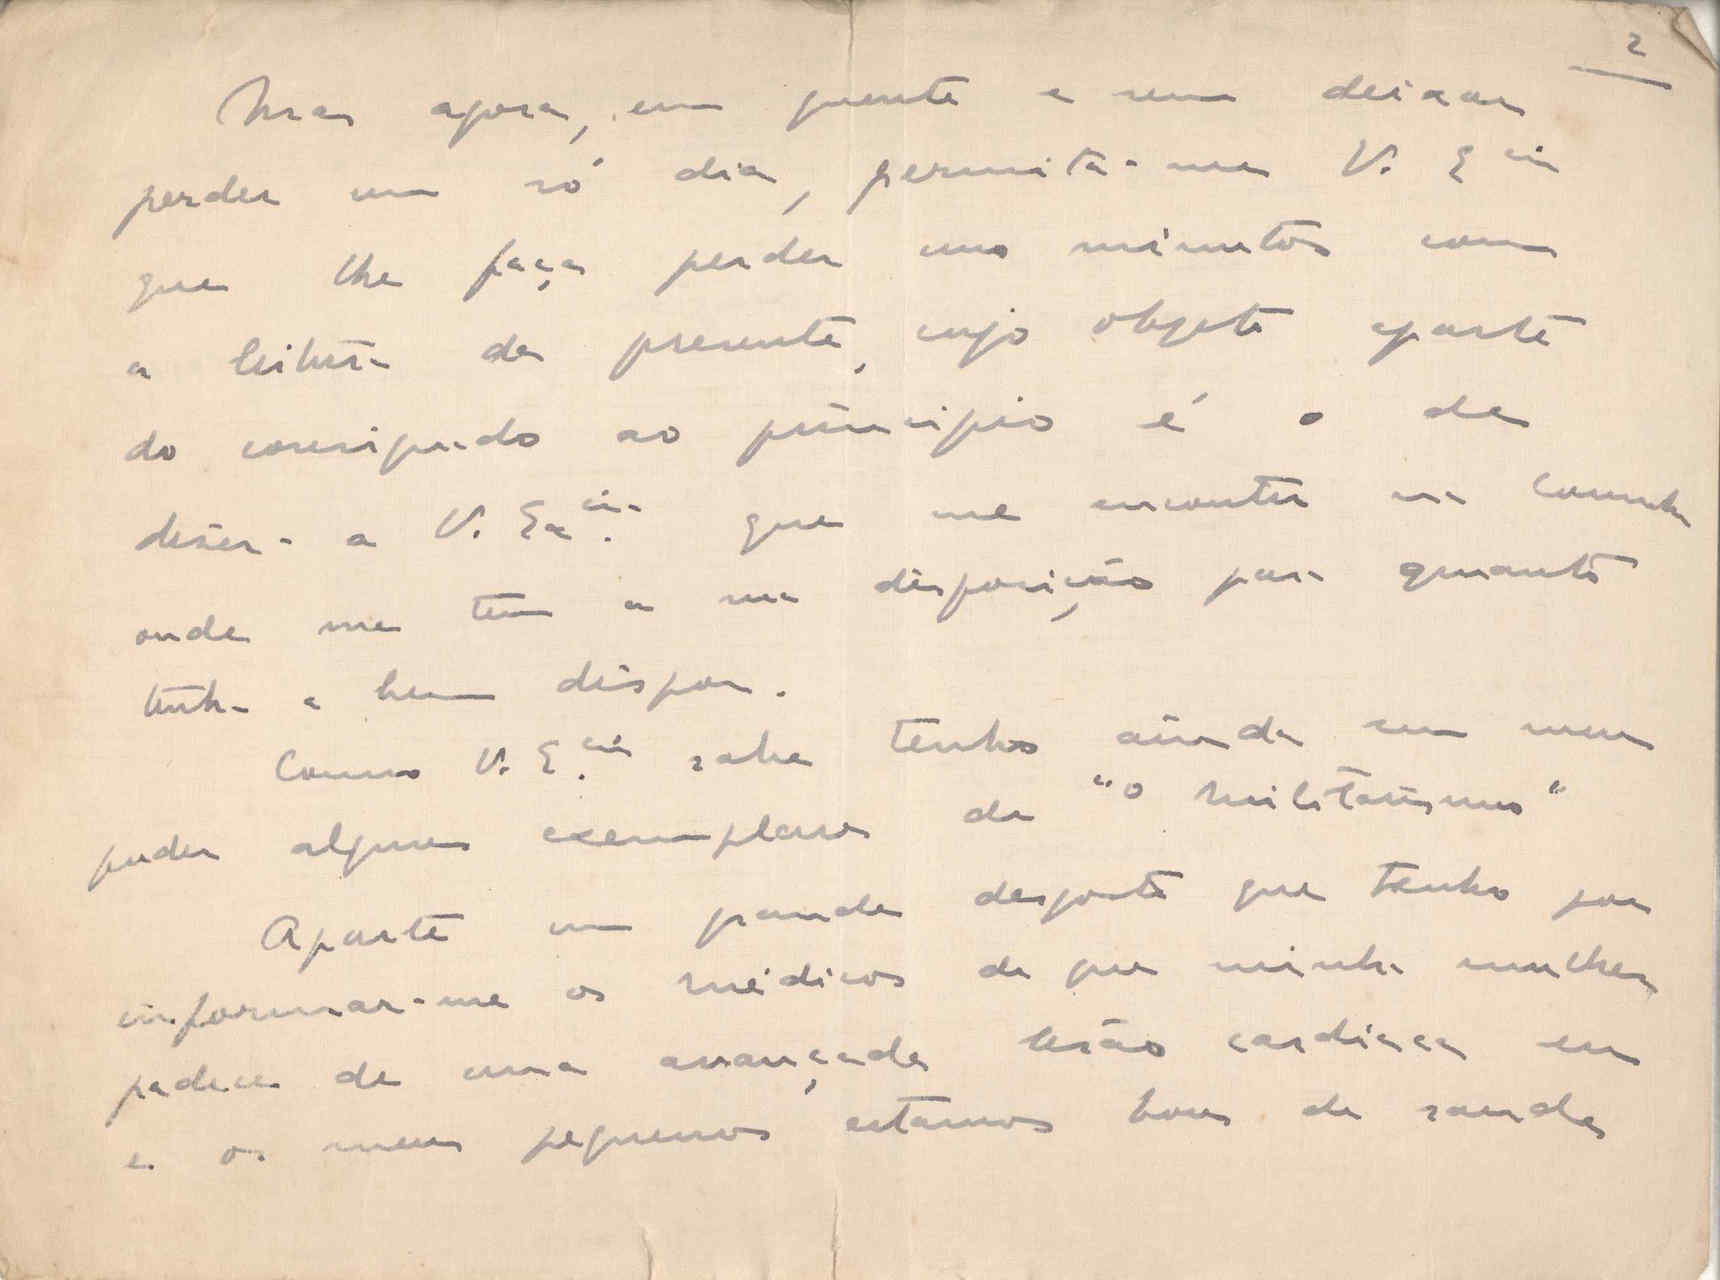 2
Mas agora, em quente e sem deixar
perder um só dia, permita-me V. Ecia
que lhe faça perder uns minutos com
a leitura da presente, cujo objeto aparte
do consignado ao principio é o de
dizer a V. Excia. que me encontro na Corunha
onde me tem a sua disposição para quanto
tenha a bem dispor.
Como V. E.cia sabe tenho ainda em meu
poder alguns exemplares de "o militarismo"
Aparte um grande desgosto que tenho por
informar-me os médicos de que minha mulher
padece de uma avançada lesão cardiaca eu
e os meus pequenos estamos bons de saude